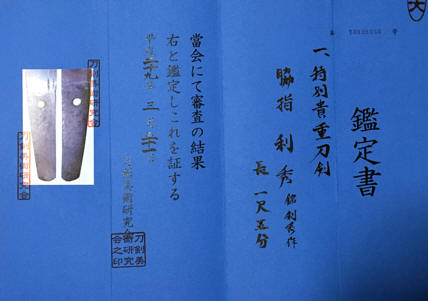 鑑定書
一、特別貴重刀剣
脇指 利秀 銘 利秀作
長 一尺五分
當会にて審査の結果
右と鑑定しこれを証する
平成二十九年 三月二十一日
刀剣美術研究会
刀剣美
術研究
会之印